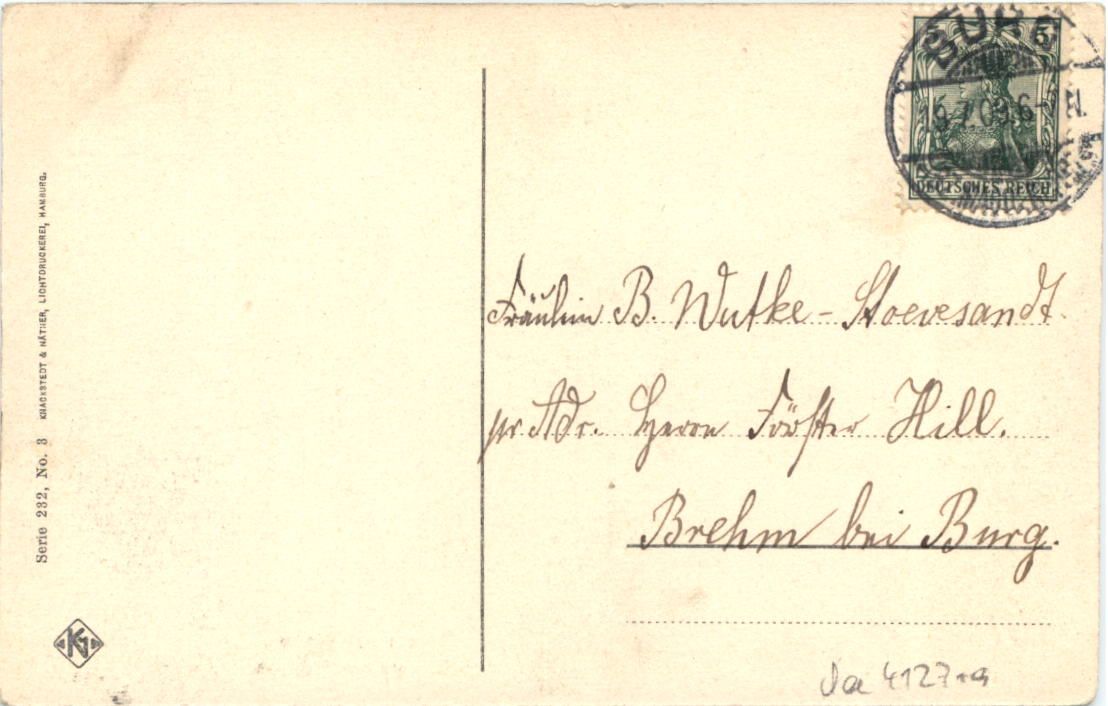 Serie 232, No. 3 KNACKSTEDT & NÄTHER, LICHTDRUCKEREI, HAMBURG.
KN
BURG
5
15.7.09.6-7 N.
DEUTSCHES REICH
Fräulein B. Wutke-Stoevesandt.
pr. Adr. Herrn Förster Hill.
Brehm bei Burg.
4127